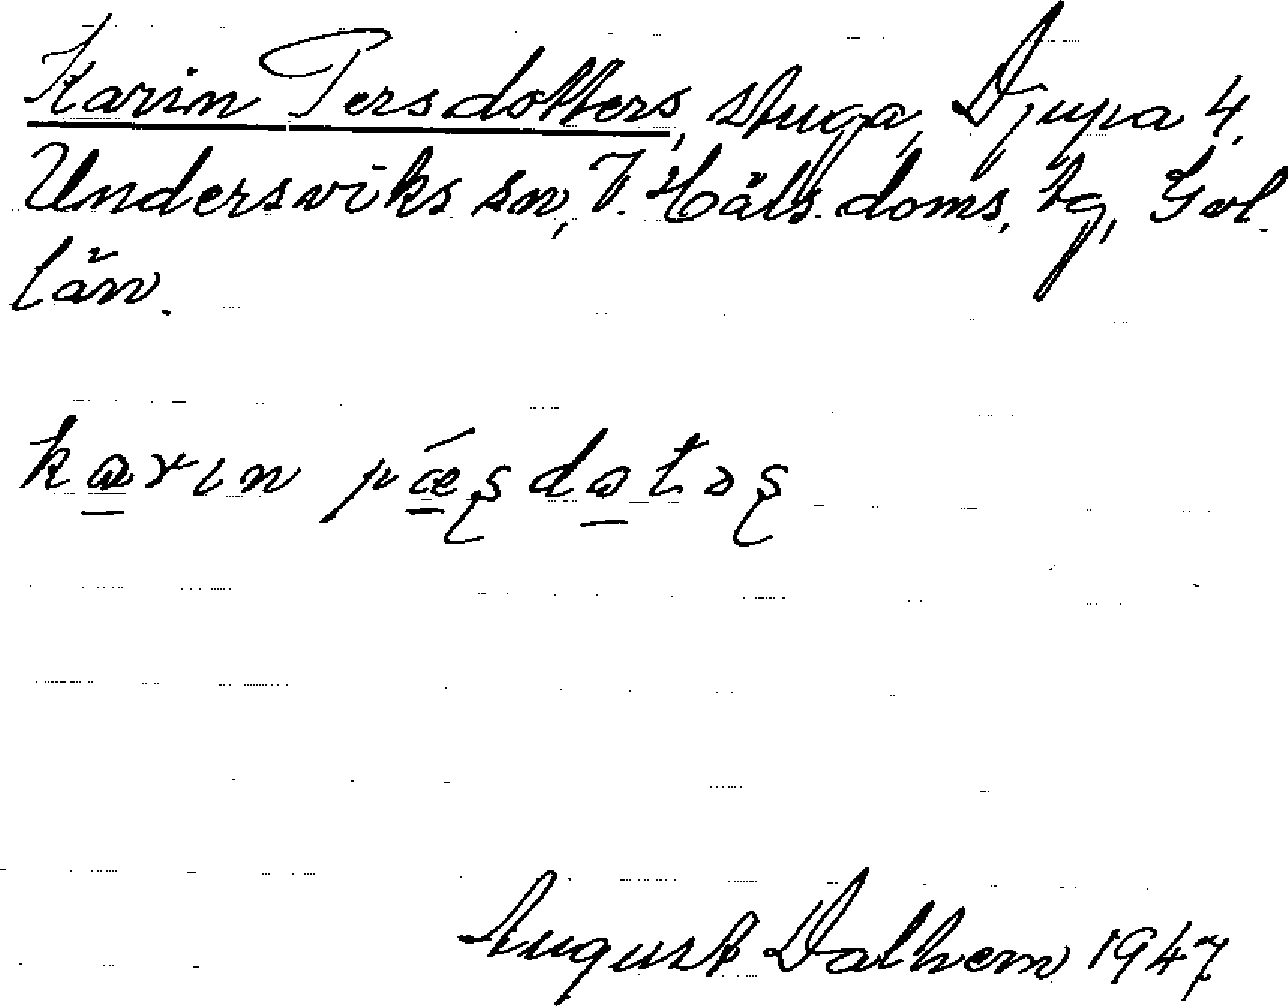 Karin Persdotters, stuga, Djupa 4,
Undersviks sn, V. Häls. doms. tg, Gvl.
län.
karın pǽʂdatəʂ
August Dalhem 1947